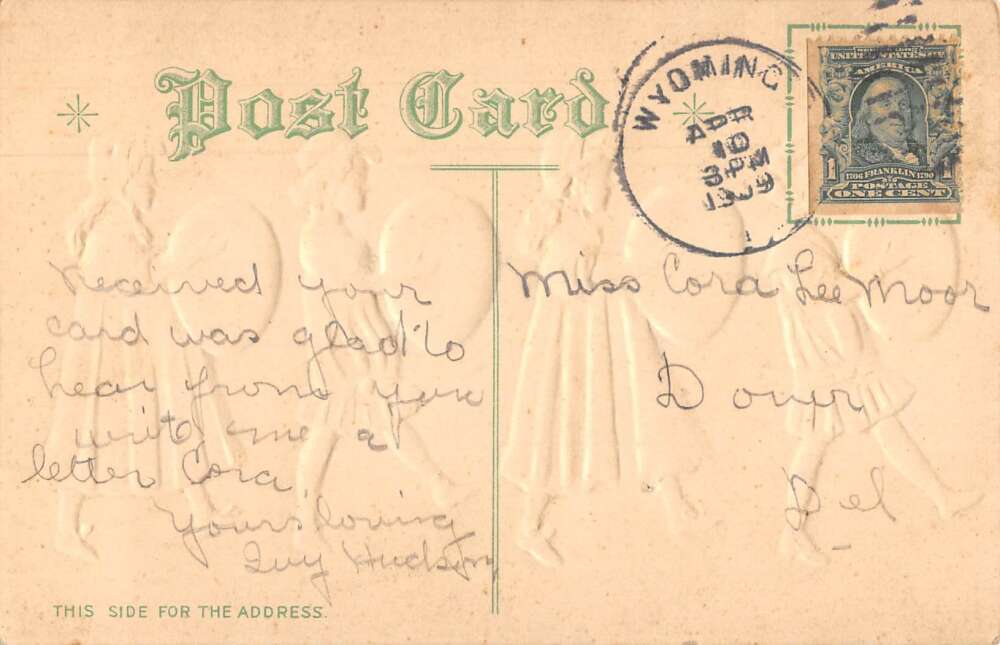 Post Card
WYOMING
APR
10
3 PM
1909
UNITED STATES OF
AMERICA
1706 FRANKLIN 1790
POSTAGE
1 ONE CENT
Received your
card was glad to
hear from you
write me a
letter Cora
Yours loving
Guy Hudson
Miss Cora Lee Moor
Dover
Del
THIS SIDE FOR THE ADDRESS.